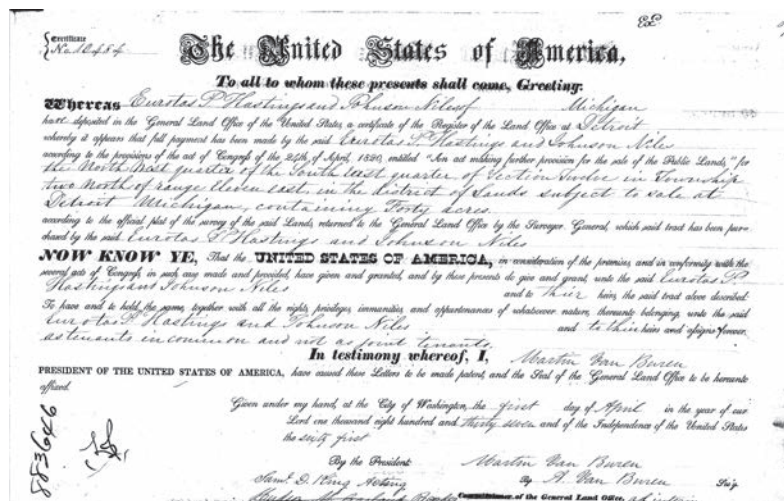 Certificate
No. 10484
The United States of America,
To all to whom these presents shall come, Greeting:
Whereas Eurotas P. Hastings and Johnson Niles of Michigan
have deposited in the General Land Office of the United States, a certificate of the Register of the Land Office at Detroit
whereby it appears that full payment has been made by the said Eurotas P. Hastings and Johnson Niles
according to the provisions of the act of Congress of the 24th of April, 1820, entitled "An act making further provision for the sale of the Public Lands," for
the North West quarter of the South east quarter of Section Twelve in Township
two North of range Eleven east, in the district of Lands subject to sale at
Detroit Michigan, containing Forty acres.
according to the official plat of the survey of the said Lands, returned to the General Land Office by the Surveyor General, which said tract has been pur-
chased by the said Eurotas P. Hastings and Johnson Niles
NOW KNOW YE, That the UNITED STATES OF AMERICA, in consideration of the premises, and in conformity with the
several acts of Congress in such case made and provided, have given and granted, and by these presents do give and grant, unto the said Eurotas P.
Hastings and Johnson Niles and to their heirs, the said tract above described:
To have and to hold the same, together with all the rights, privileges, immunities, and appurtenances of whatsoever nature, thereunto belonging, unto the said
Eurotas P. Hastings and Johnson Niles and to their heirs and assigns forever,
as tenants in common and not as joint tenants.
In testimony whereof, I, Martin Van Buren
PRESIDENT OF THE UNITED STATES OF AMERICA, have caused these Letters to be made patent, and the Seal of the General Land Office to be hereunto
affixed.
Given under my hand, at the City of Washington, the first day of April in the year of our
Lord one thousand eight hundred and thirty seven and of the Independence of the United States
the sixty first
By the President: Martin Van Buren
By A. Van Buren Sec'y.
Saml. D. King Acting
Commissioner of the General Land Office ad interim
883646